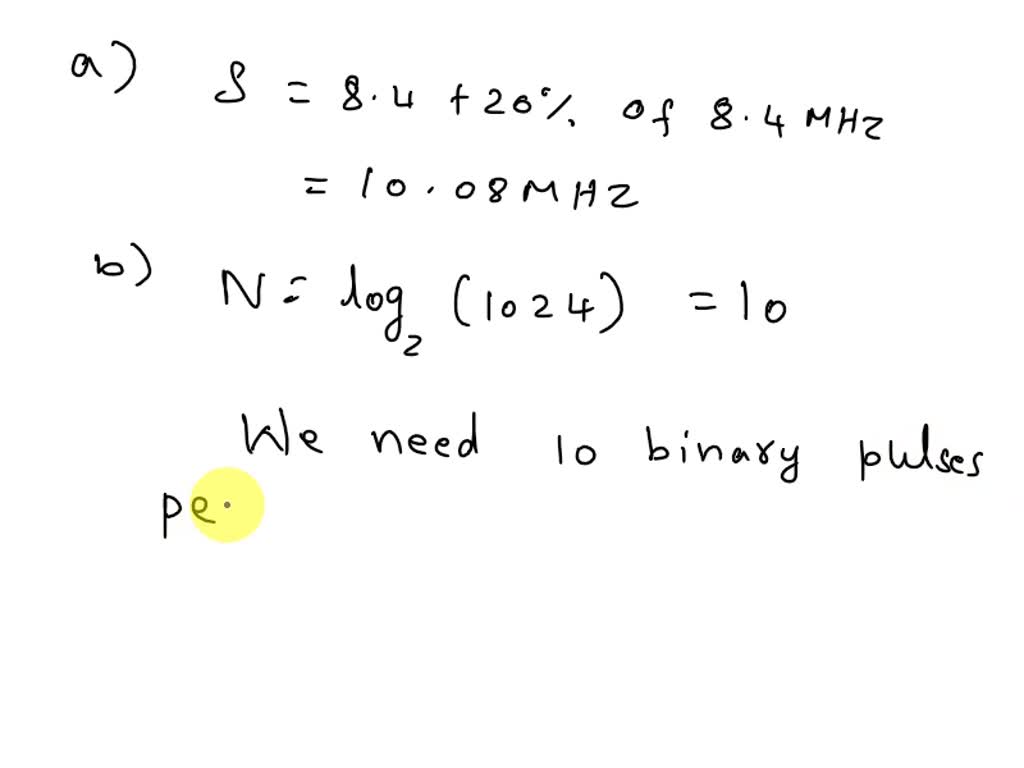 a) S = 8.4 + 20% of 8.4 MHZ
= 10.08 MHZ
b) N = log₂ (1024) = 10
We need 10 binary pulses
pe